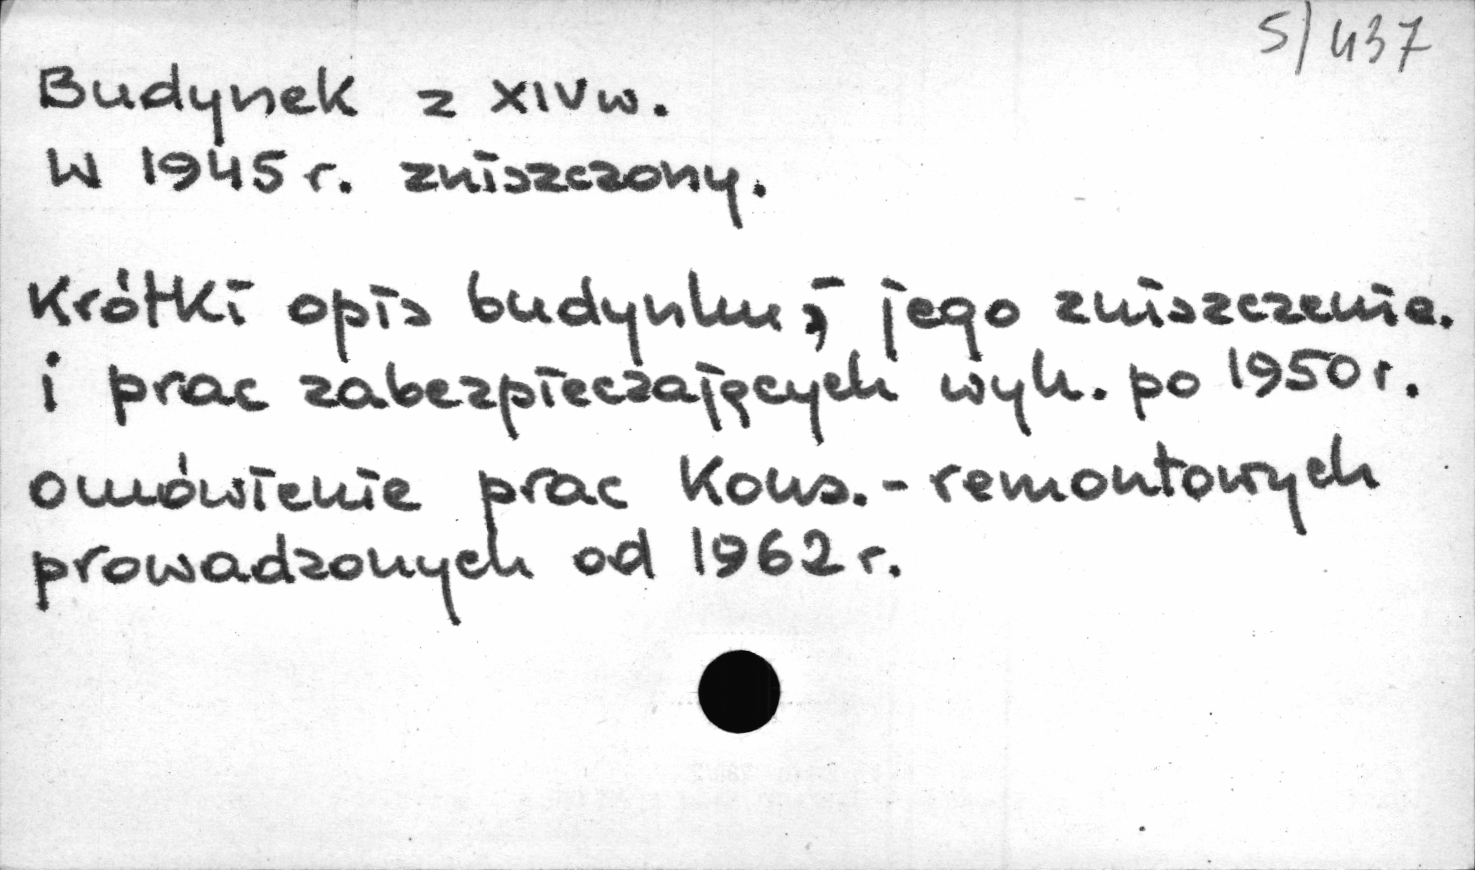 S/437
Budynek z XIV w.
W 1945 r. zniszczony.
Krótki opis budynku, jego zniszczenie.
i prac zabezpieczających wyk. po 1950 r.
omówienie prac kons.-remontowych
prowadzonych od 1962 r.